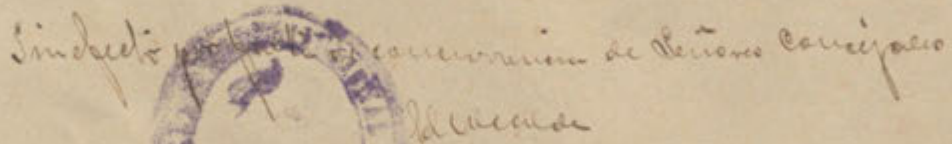 Sin efecto por falta de concurrencia de Señores Concejales
El Alcalde